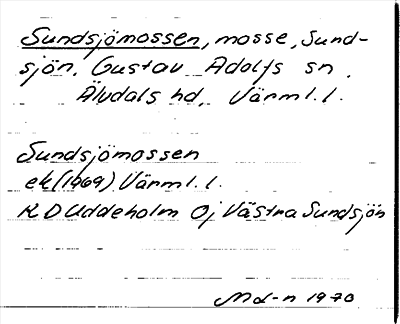 Sundsjömossen, mosse, Sund-
sjön. Gustav Adolfs sn,
Älvdals hd, Värml. l.
Sundsjömossen
ek (1969) Värml. l.
K D Uddeholm Öj Västra Sundsjön
Md-n 1970